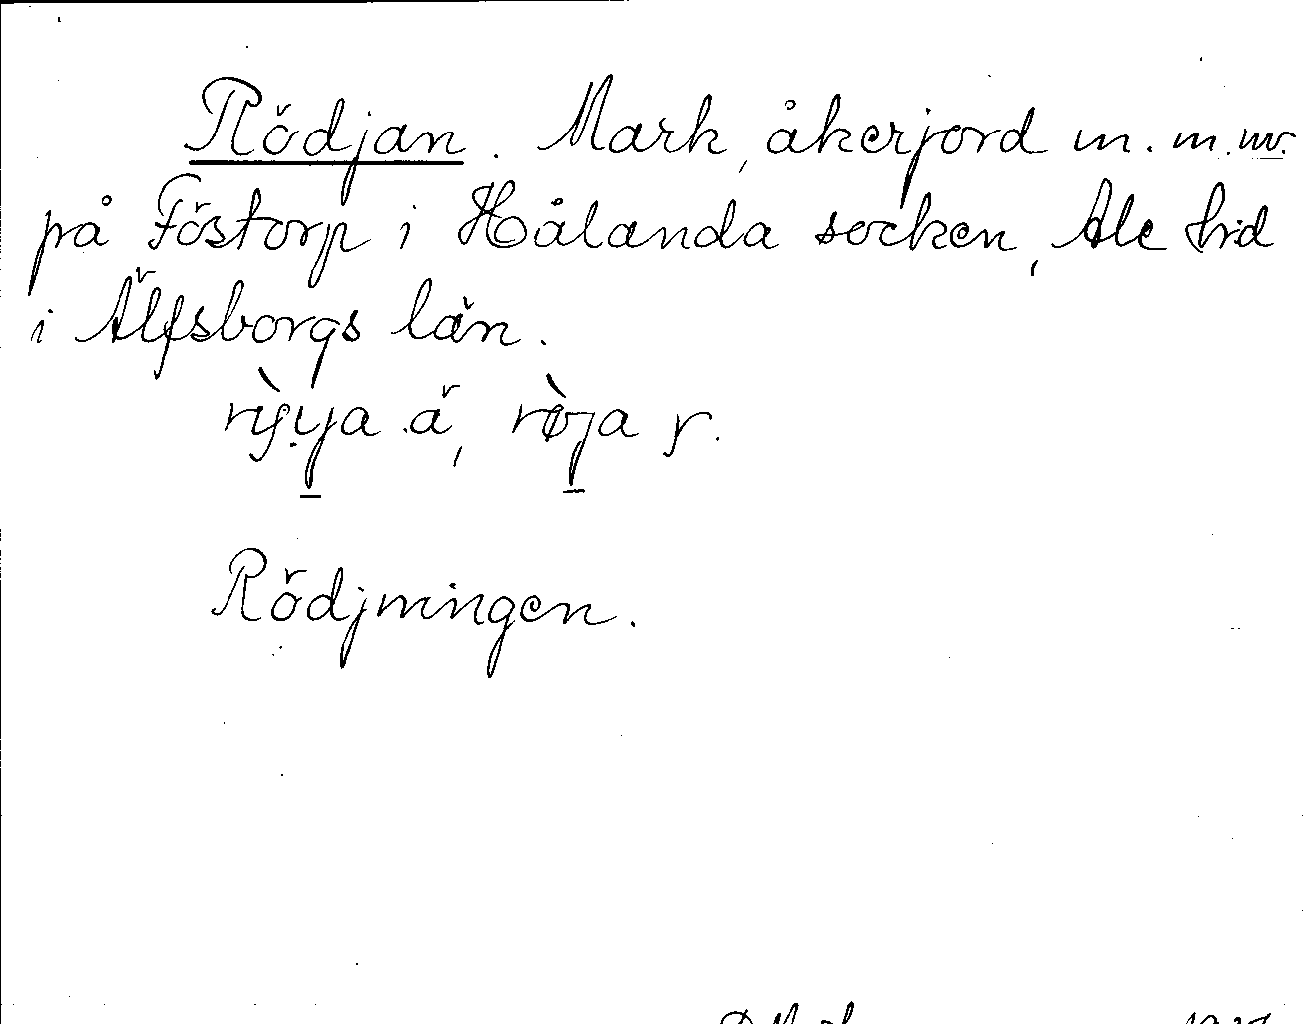 Rödjan. Mark, åkerjord m. m. nv.
på Föstorp i Hålanda socken, Ale hd
i Älfsborgs län.
ä, y.
Rödjningen.